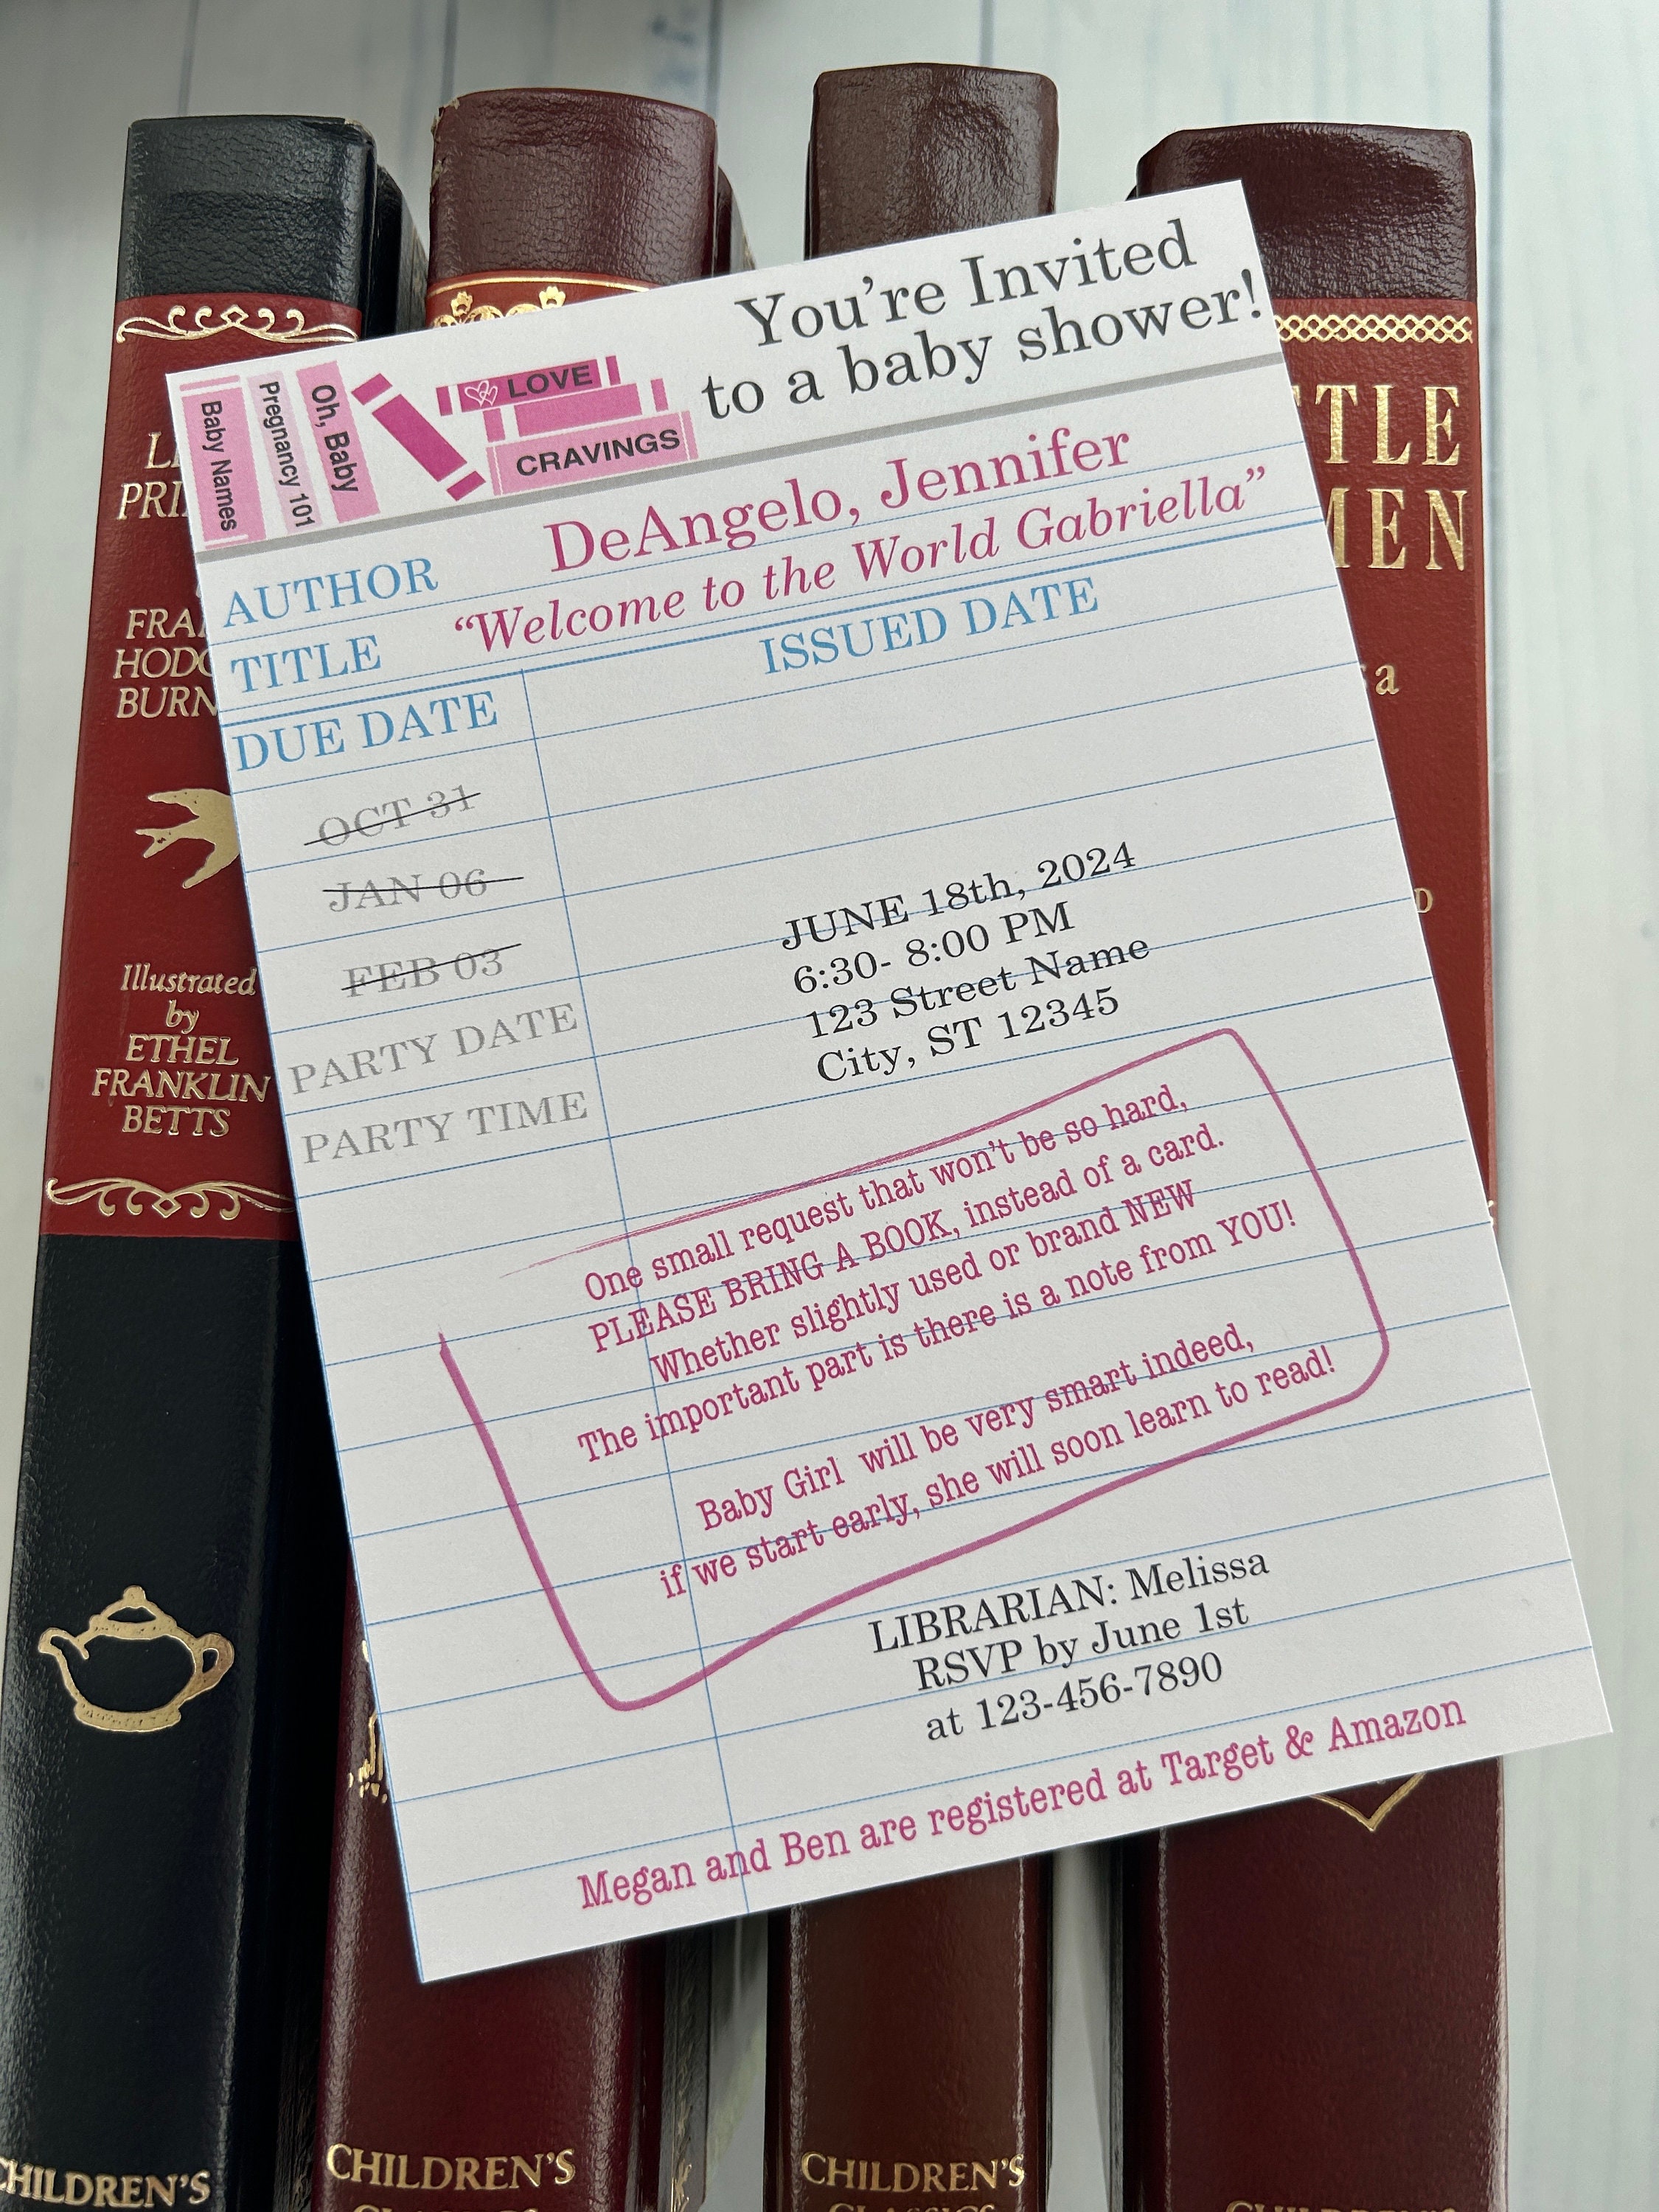 You're Invited
to a baby shower!
Baby Names
Pregnancy 101
Oh, Baby
LOVE
CRAVINGS
AUTHOR DeAngelo, Jennifer
TITLE “Welcome to the World Gabriella”
DUE DATE ISSUED DATE
OCT 31
JAN 06
FEB 03
PARTY DATE
PARTY TIME
JUNE 18th, 2024
6:30- 8:00 PM
123 Street Name
City, ST 12345
One small request that won't be so hard,
PLEASE BRING A BOOK, instead of a card.
Whether slightly used or brand NEW
The important part is there is a note from YOU!
Baby Girl will be very smart indeed,
if we start early, she will soon learn to read!
LIBRARIAN: Melissa
RSVP by June 1st
at 123-456-7890
Megan and Ben are registered at Target & Amazon
Illustrated
by
ETHEL
FRANKLIN
BETTS
CHILDREN'S
CHILDREN'S
CHILDREN'S